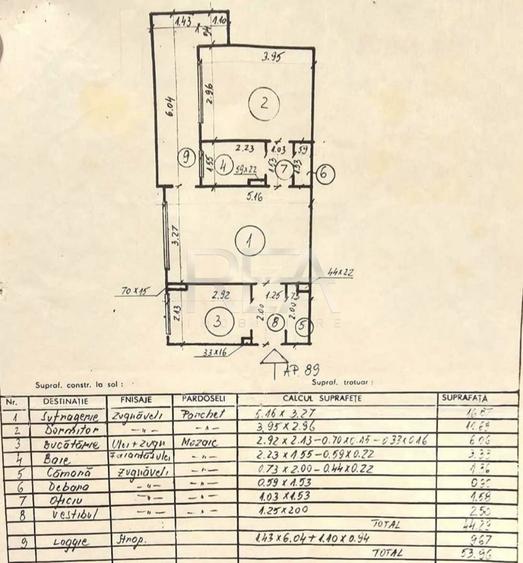 1.43 1.10
.94
3.95
6.04
2.96
2
2.23 1.03 .59
9
1.55
4
1.53
7
1.53
6
59x22
5.16
3.27
1
44x22
70x15
2.92 1.25 .73
2.13
3
2.00
8
2.00
5
33x16
AP 89
Supraf. constr. la sol :
Supraf. trotuar :
Nr. DESTINAȚIE FINISAJE PARDOSELI CALCUL SUPRAFEȚE SUPRAFAȚA
1 Sufragerie Zugrăveli Parchet 5.16 x 3.27 16.87
2 Dormitor —„— —„— 3.95 x 2.96
3 Bucătărie Ulei + zugr. Mozaic 2.92 x 2.13 – 0.70 x 0.15 – 0.33 x 0.16 6.06
4 Baie —„— 2.23 x 1.55 – 0.59 x 0.22 3.33
5 Cămară Zugrăveli —„— 0.73 x 2.00 – 0.44 x 0.22 1.36
6 Debara —„— —„— 0.59 x 1.53
7 Oficiu —„— —„— 1.03 x 1.53 1.58
8 Vestibul —„— —„— 1.25 x 2.00 2.50
TOTAL 44.29
9 Loggie Strop. 1.43 x 6.04 + 1.10 x 0.94 9.67
TOTAL 53.96